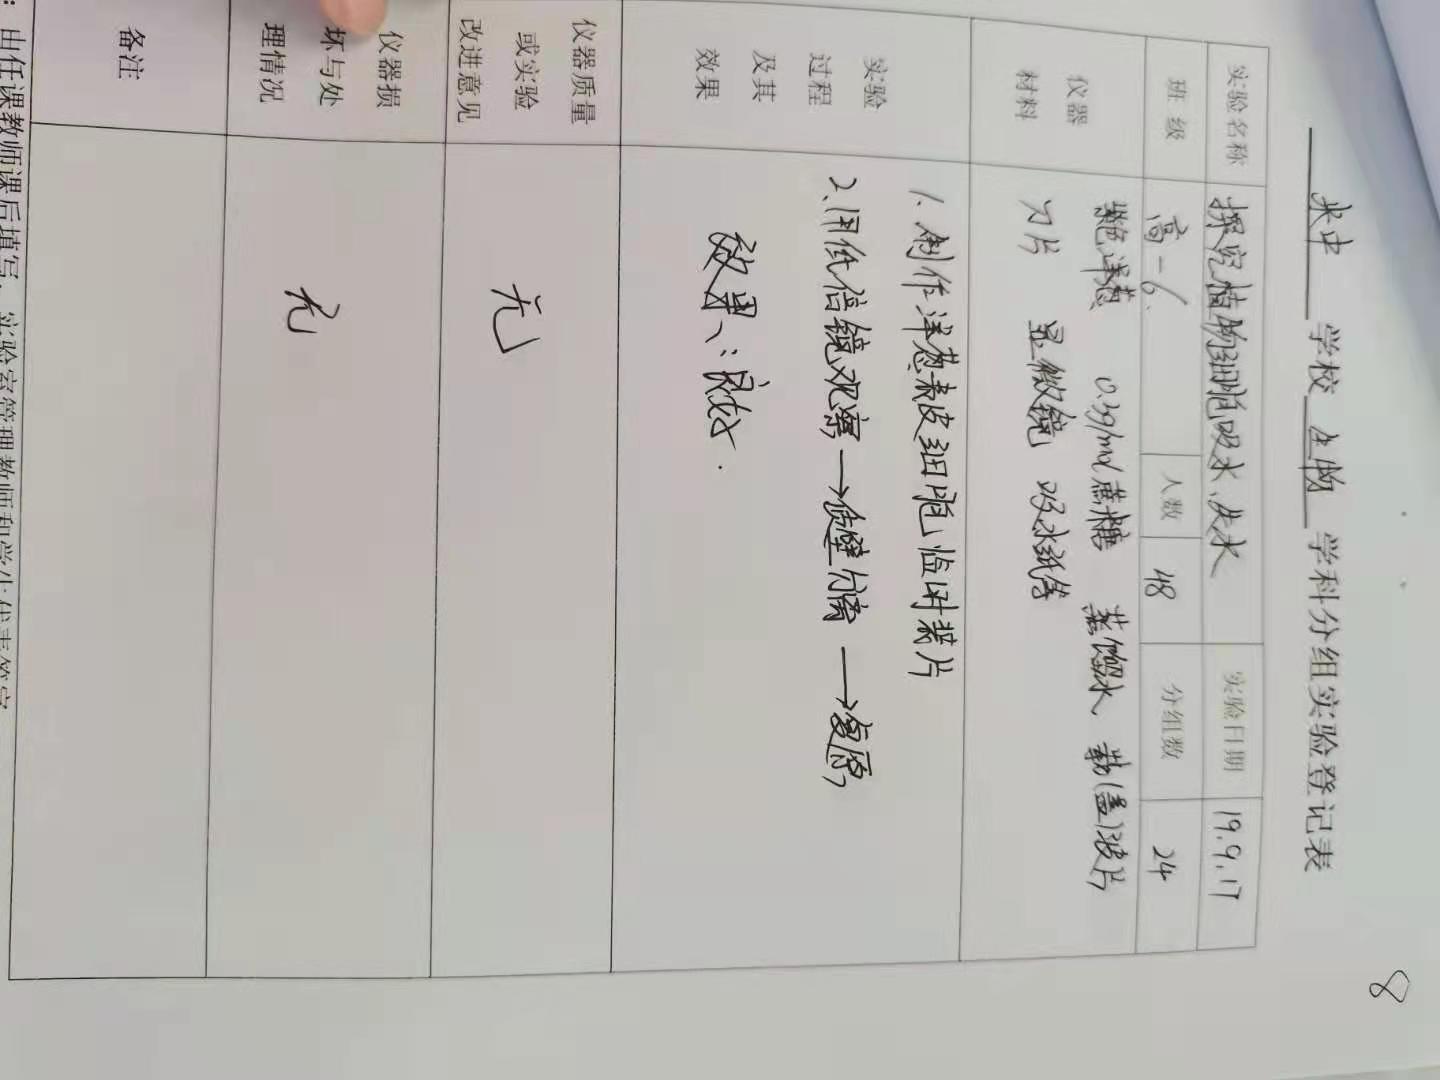 8
夹中 学校 生物 学科分组实验登记表
实验名称 探究植物细胞吸水、失水 实验日期 19.9.17
班 级 高一6. 人数 48 分组数 24
仪器材料 紫色洋葱 0.3g/ml蔗糖 蒸馏水、载(盖)玻片
刀片 显微镜 吸水纸等
实验过程及其效果 1. 制作洋葱表皮细胞临时装片
2、用低倍镜观察→质壁分离→复原
效果:良好.
仪器质量或实验改进意见 无
仪器损坏与处理情况 无
备注
: 由任课教师课后填写,实验室管理教师和学生代表签字